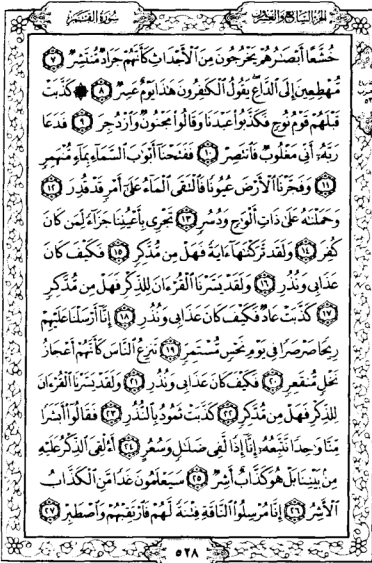 الجزء السابع والعشرون سورة القمر
خُشَّعًا أَبْصَٰرُهُمْ يَخْرُجُونَ مِنَ ٱلْأَجْدَاثِ كَأَنَّهُمْ جَرَادٌ مُّنتَشِرٌ ٧
مُّهْطِعِينَ إِلَى ٱلدَّاعِ يَقُولُ ٱلْكَٰفِرُونَ هَٰذَا يَوْمٌ عَسِرٌ ٨ ۞ كَذَّبَتْ
قَبْلَهُمْ قَوْمُ نُوحٍ فَكَذَّبُوا۟ عَبْدَنَا وَقَالُوا۟ مَجْنُونٌ وَٱزْدُجِرَ ٩ فَدَعَا
رَبَّهُۥٓ أَنِّى مَغْلُوبٌ فَٱنتَصِرْ ١٠ فَفَتَحْنَآ أَبْوَٰبَ ٱلسَّمَآءِ بِمَآءٍ مُّنْهَمِرٍ
١١ وَفَجَّرْنَا ٱلْأَرْضَ عُيُونًا فَٱلْتَقَى ٱلْمَآءُ عَلَىٰٓ أَمْرٍ قَدْ قُدِرَ ١٢
وَحَمَلْنَٰهُ عَلَىٰ ذَاتِ أَلْوَٰحٍ وَدُسُرٍ ١٣ تَجْرِى بِأَعْيُنِنَا جَزَآءً لِّمَن كَانَ
كُفِرَ ١٤ وَلَقَد تَّرَكْنَٰهَآ ءَايَةً فَهَلْ مِن مُّدَّكِرٍ ١٥ فَكَيْفَ كَانَ
عَذَابِى وَنُذُرِ ١٦ وَلَقَدْ يَسَّرْنَا ٱلْقُرْءَانَ لِلذِّكْرِ فَهَلْ مِن مُّدَّكِرٍ
١٧ كَذَّبَتْ عَادٌ فَكَيْفَ كَانَ عَذَابِى وَنُذُرِ ١٨ إِنَّآ أَرْسَلْنَا عَلَيْهِمْ
رِيحًا صَرْصَرًا فِى يَوْمِ نَحْسٍ مُّسْتَمِرٍّ ١٩ تَنزِعُ ٱلنَّاسَ كَأَنَّهُمْ أَعْجَازُ
نَخْلٍ مُّنقَعِرٍ ٢٠ فَكَيْفَ كَانَ عَذَابِى وَنُذُرِ ٢١ وَلَقَدْ يَسَّرْنَا ٱلْقُرْءَانَ
لِلذِّكْرِ فَهَلْ مِن مُّدَّكِرٍ ٢٢ كَذَّبَتْ ثَمُودُ بِٱلنُّذُرِ ٢٣ فَقَالُوٓا۟ أَبَشَرًا
مِّنَّا وَٰحِدًا نَّتَّبِعُهُۥٓ إِنَّآ إِذًا لَّفِى ضَلَٰلٍ وَسُعُرٍ ٢٤ أَءُلْقِىَ ٱلذِّكْرُ عَلَيْهِ
مِنۢ بَيْنِنَا بَلْ هُوَ كَذَّابٌ أَشِرٌ ٢٥ سَيَعْلَمُونَ غَدًا مَّنِ ٱلْكَذَّابُ
ٱلْأَشِرُ ٢٦ إِنَّا مُرْسِلُوا۟ ٱلنَّاقَةِ فِتْنَةً لَّهُمْ فَٱرْتَقِبْهُمْ وَٱصْطَبِرْ ٢٧
٥٢٨